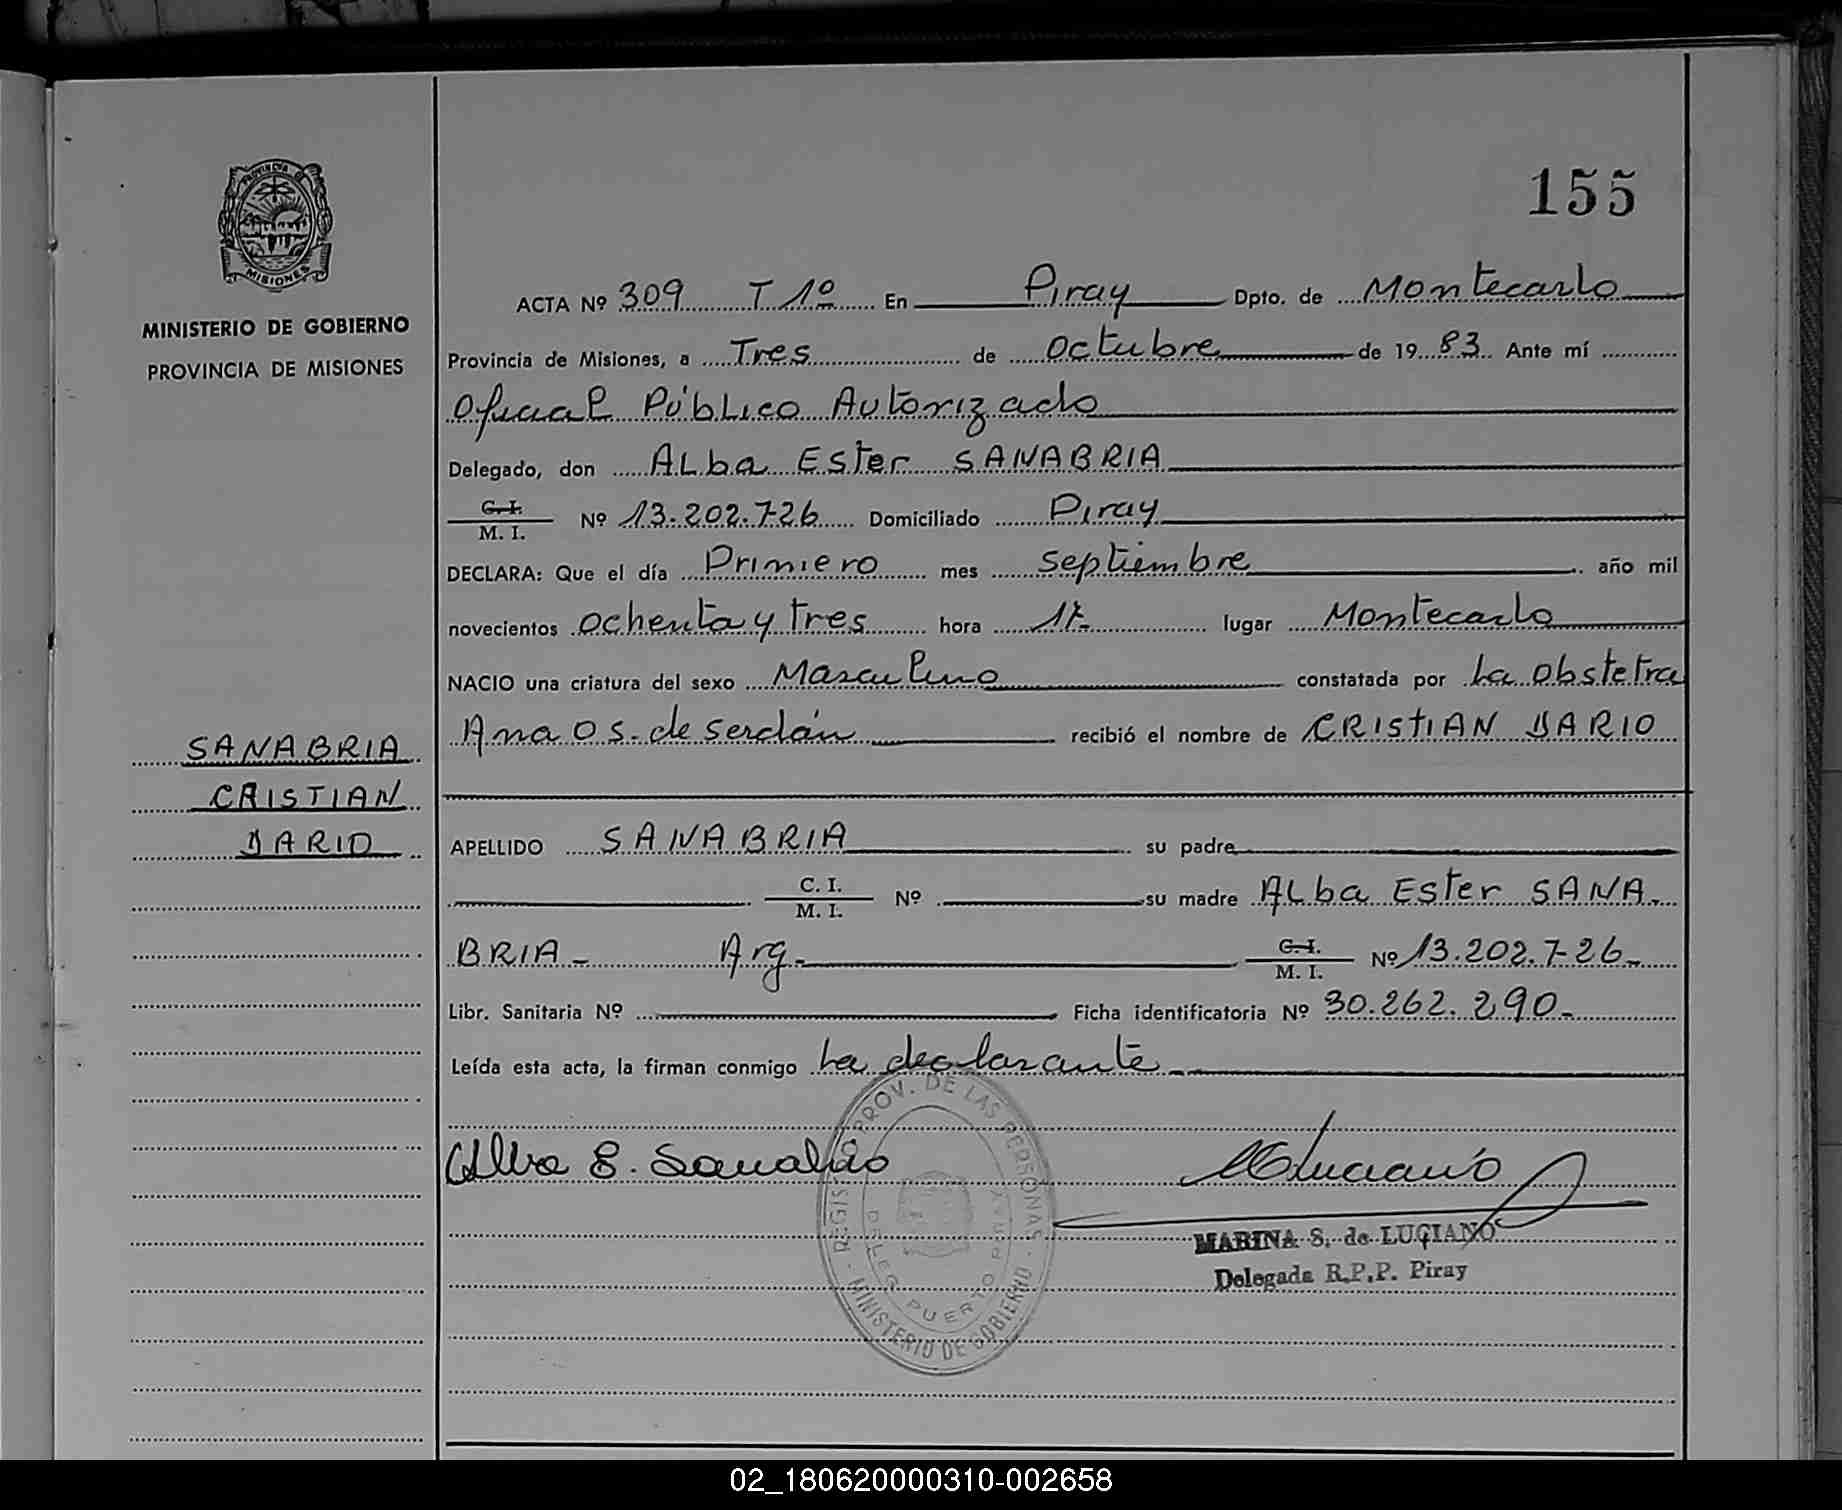 155
PROVINCIA D
MISIONES
MINISTERIO DE GOBIERNO
PROVINCIA DE MISIONES
SANABRIA
CRISTIAN
DARIO
ACTA Nº 309 T 1º En Piray Dpto. de Montecarlo
Provincia de Misiones, a Tres de Octubre de 19 83 Ante mí
Oficial Público Autorizado
Delegado, don Alba Ester SANABRIA
C. I. M. I. Nº 13.202.726 Domiciliado Piray
DECLARA: Que el día Primero mes septiembre año mil
novecientos ochenta y tres hora 17 lugar Montecarlo
NACIO una criatura del sexo Masculino constatada por La obstetra
Ana O s. de Serdán recibió el nombre de CRISTIAN DARIO
APELLIDO SANABRIA su padre
C. I. M. I. Nº su madre Alba Ester SANA-
BRIA - Arg. C. I. M. I. Nº 13.202.726-
Libr. Sanitaria Nº Ficha identificatoria Nº 30.262.290-
Leída esta acta, la firman conmigo La declarante
Alba E. Sanabria
MLuciano
MARINA S. de LUCIANO
Delegada R.P.P. Piray
REGISTRO PROV. DE LAS PERSONAS - MINISTERIO DE GOBIERNO -
DELEG PUERTO PIRAY
02_180620000310-002658